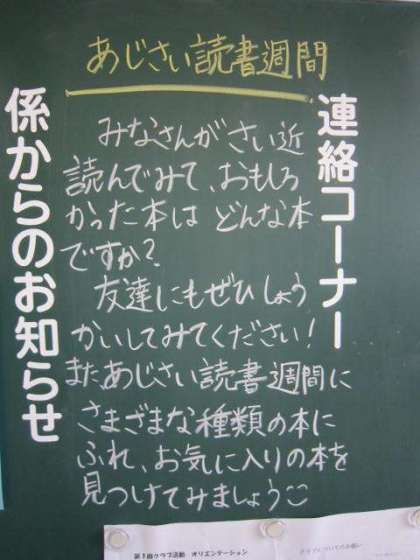 あじさい読書週間
連絡コーナー
係からのお知らせ
みなさんがさい近
読んでみて、おもしろ
かった本は どんな本
ですか?
友達にもぜひしょう
かいしてみてください!
またあじさい読書週間に
さまざまな種類の本に
ふれ、お気に入りの本を
見つけてみましょう
第1回クラブ活動 オリエンテーション